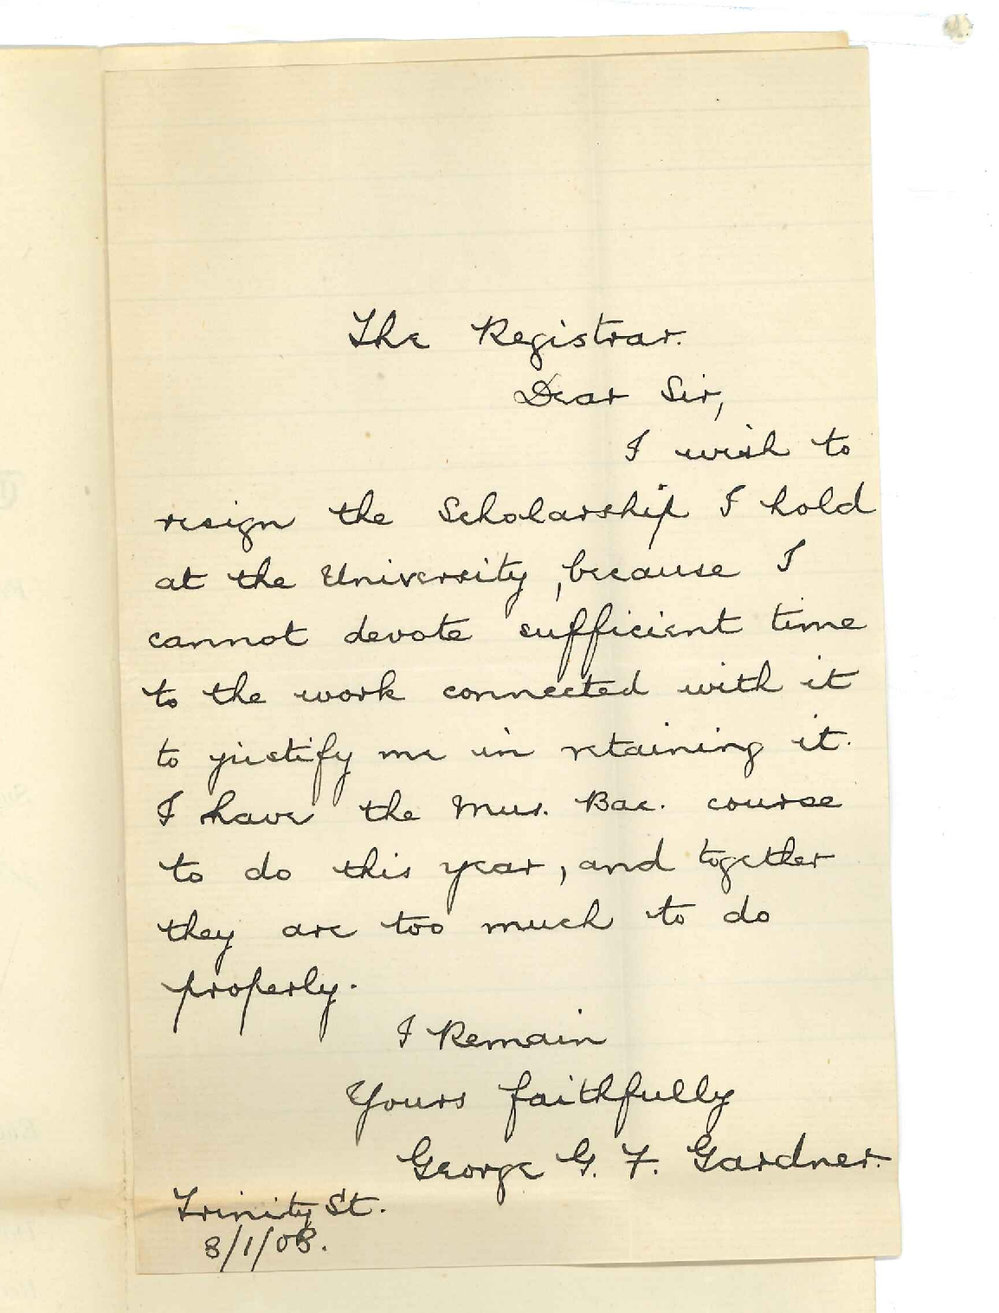 The Registrar.
Dear Sir,
I wish to
resign the Scholarship I hold
at the University, because I
cannot devote sufficient time
to the work connected with it
to justify me in retaining it.
I have the Mus. Bac. course
to do this year, and together
they are too much to do
properly.
I Remain
Yours faithfully
George G. F. Gardner.
Trinity St.
8/1/08.